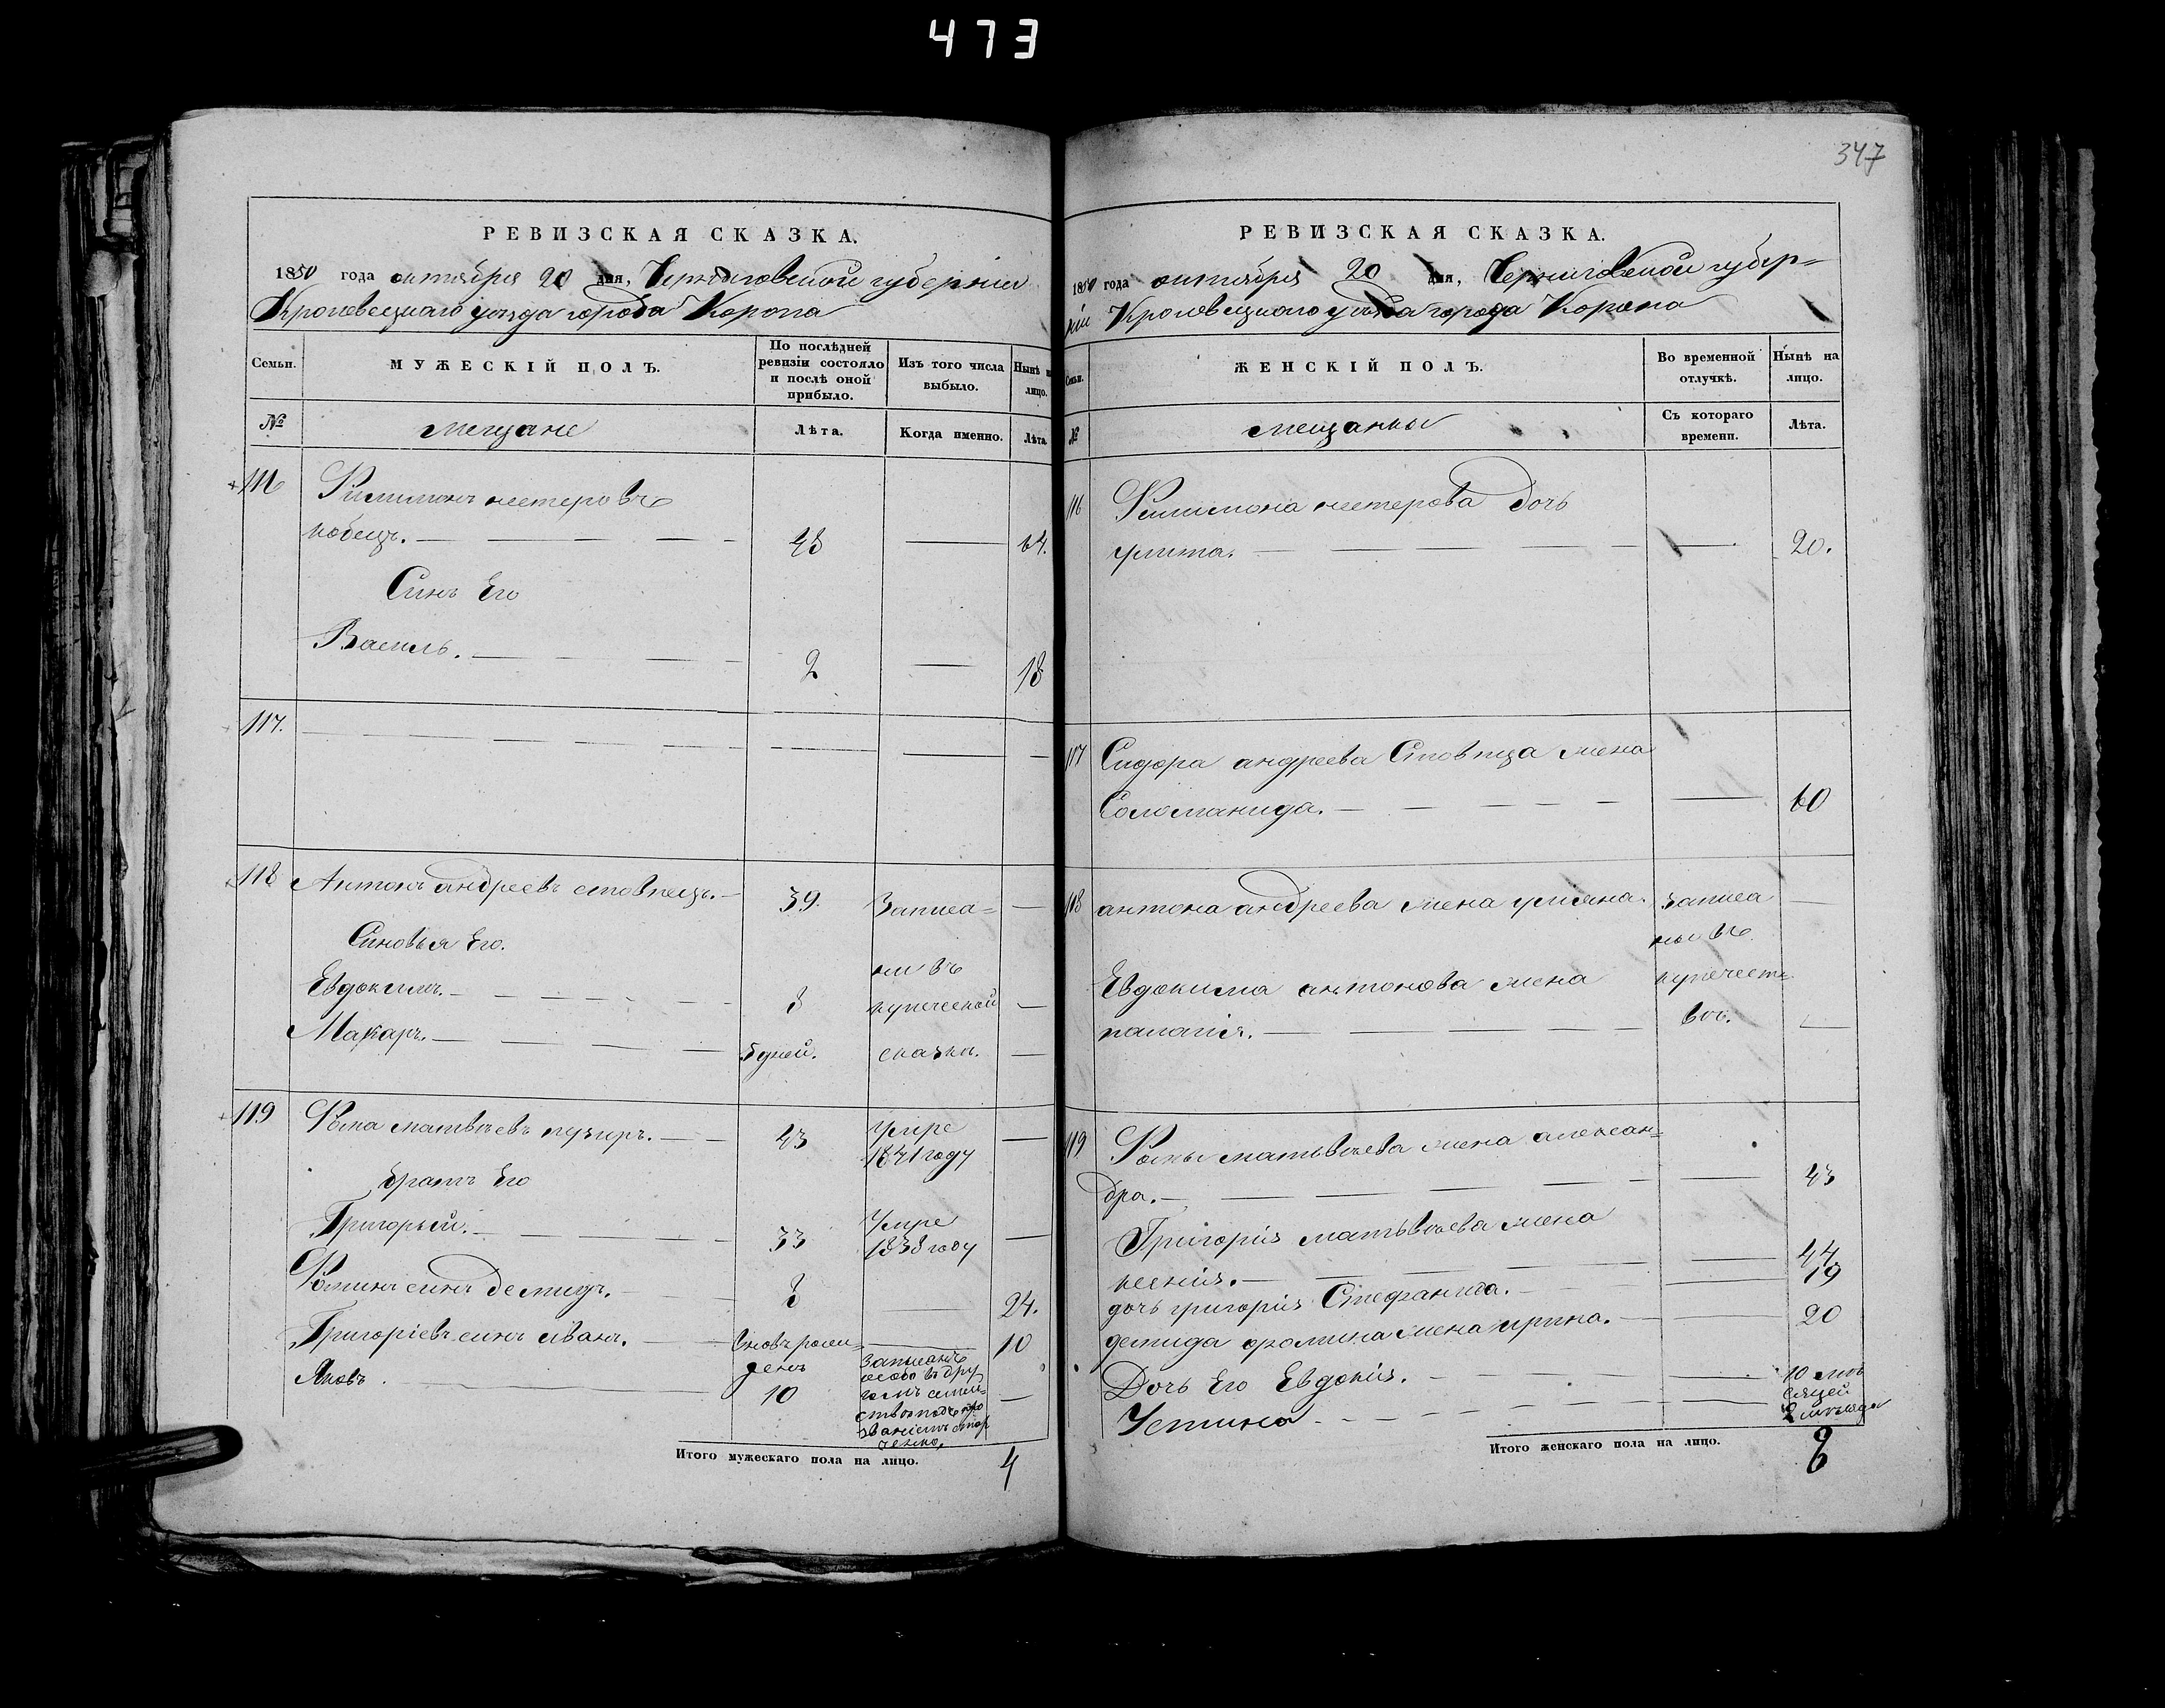 473
347
РЕВИЗСКАЯ СКАЗКА.
1850 года октября 20 дня, Черниговской губернии
Кролевецкаго уѣзда города Коропа
Семьи.
МУЖЕСКІЙ ПОЛЪ.
По послѣдней ревизіи состояло и послѣ оной прибыло.
Изъ того числа выбыло.
Нынѣ на лицо.
№
мещане
Лѣта.
Когда именно.
Лѣта.
116 Филимонъ нестеровъ
кобецъ. 48 64.
Синъ Его
Василь. 2 18
117.
118 Антонъ андреевъ стовпецъ. 39. Записа=
Синовья Его.
ни въ
Евдокимъ. 8 купеческой
Макаръ. 5 дней. сказки.
119 Фома матвѣевъ пузиръ. 43 Умре
1841 году
братъ Его
Григорьей. 33 Умре
1838 году
Фоминъ синъ демидъ. 8 24.
Григоріевъ синъ иванъ. вновь рож=
денъ 10
Яковъ. 10 записанъ
особо въ дру
гомъ семей=
ствѣ подъ про
званіемъ
Итого мужескаго пола на лицо. 4
РЕВИЗСКАЯ СКАЗКА.
1850 года октября 20 дня, Черниговской губер=
ніи Кролевецкаго уѣзда города Коропа
Семьи.
ЖЕНСКІЙ ПОЛЪ.
Во временной отлучкѣ.
Нынѣ на лицо.
№
мещанки
Съ котораго времени.
Лѣта.
116 Филимона нестерова дочь
улита. 20.
117 Сидора андреева Стовпца жена
Соломанида. 60
118 антона андреева жена улияна. записа
ны въ
Евдокима антонова жена купечест=
палагія. вѣ.
119 Фомы матьвѣева жена алексан=
дра. 43
Григорія матьвѣева жена
ксенія. 44
дочь григорія Стефанида. 19
демида фомина жена ирина. 20
Дочь Его Евдокія. 10 мѣ
сяцей
Устина 2 мѣсяца
Итого женскаго пола на лицо. 8